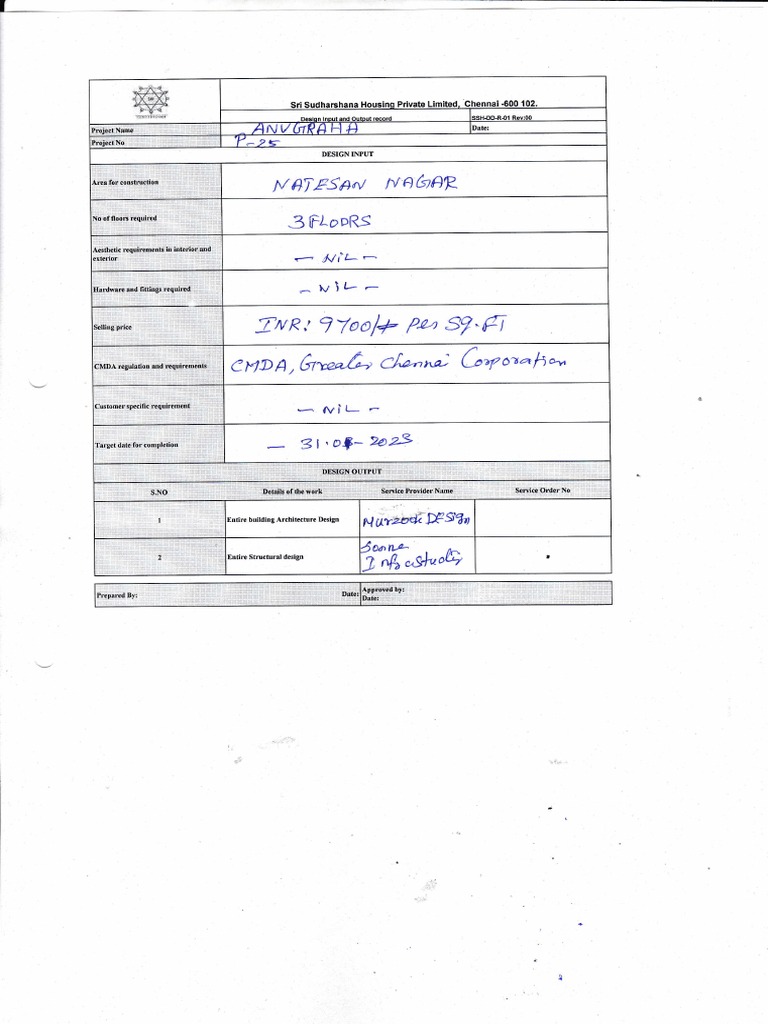 Sri Sudharshana Housing Private Limited, Chennai -600 102.
Design Input and Output record SSH-DD-R-01 Rev:00
Project Name ANUGRAHA Date:
Project No P-25
DESIGN INPUT
Area for construction NATESAN NAGAR
No of floors required 3 FLOORS
Aesthetic requirements in interior and
exterior - NiL -
Hardware and fittings required - NiL -
Selling price INR: 9700/- Per SQ.FT
CMDA regulation and requirements CMDA, Greater Chennai Corporation
Customer specific requirement - NiL -
Target date for completion - 2023
DESIGN OUTPUT
S.NO Details of the work Service Provider Name Service Order No
1 Entire building Architecture Design DESign
2 Entire Structural design
Prepared By: Date: Approved by:
Date: